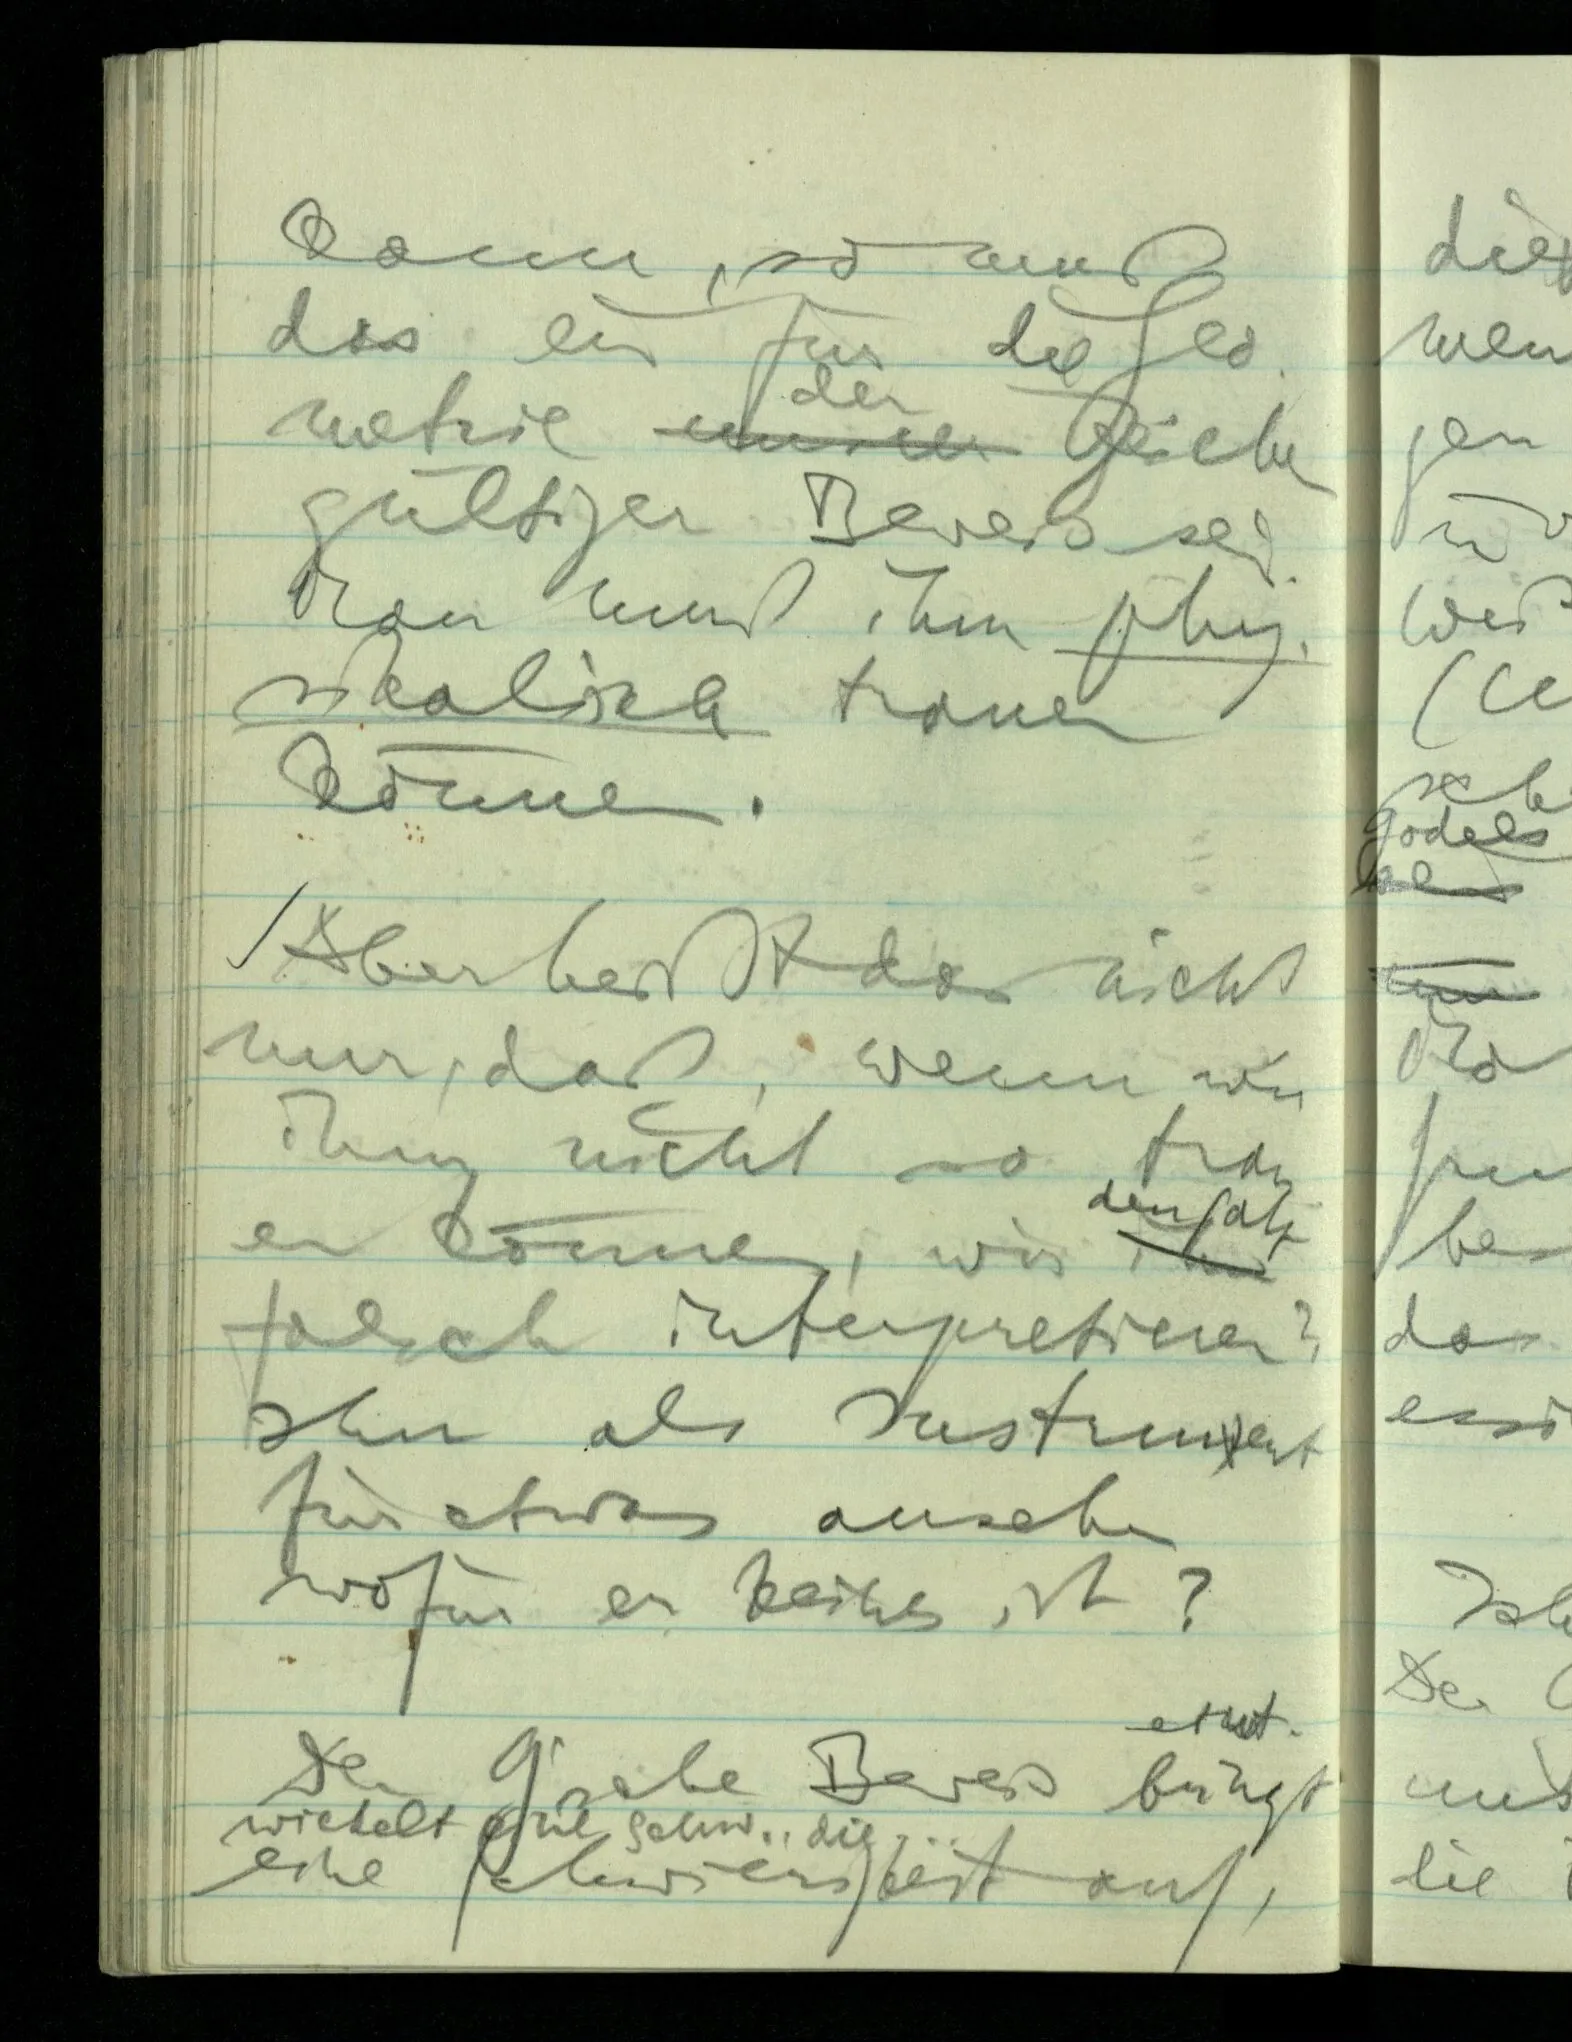 kann, so muß
das ein für die Geo-
metrie der Zeichen
gültiger Beweis sein.
Man muß ihm phy-
sikalisch trauen
können.
/ Aber heißt das nicht
nur, daß, wenn wir
ihm nicht so trau-
en können, wir den Satz
falsch interpretieren?
Ihn als Instrument
für etwas ansehen
wofür er keines ist?
Der G'sche Beweis bringt ent-
wickelt eine Schw., die
eine Schwierigkeit auf,
die
wen
gen
das
Der
die